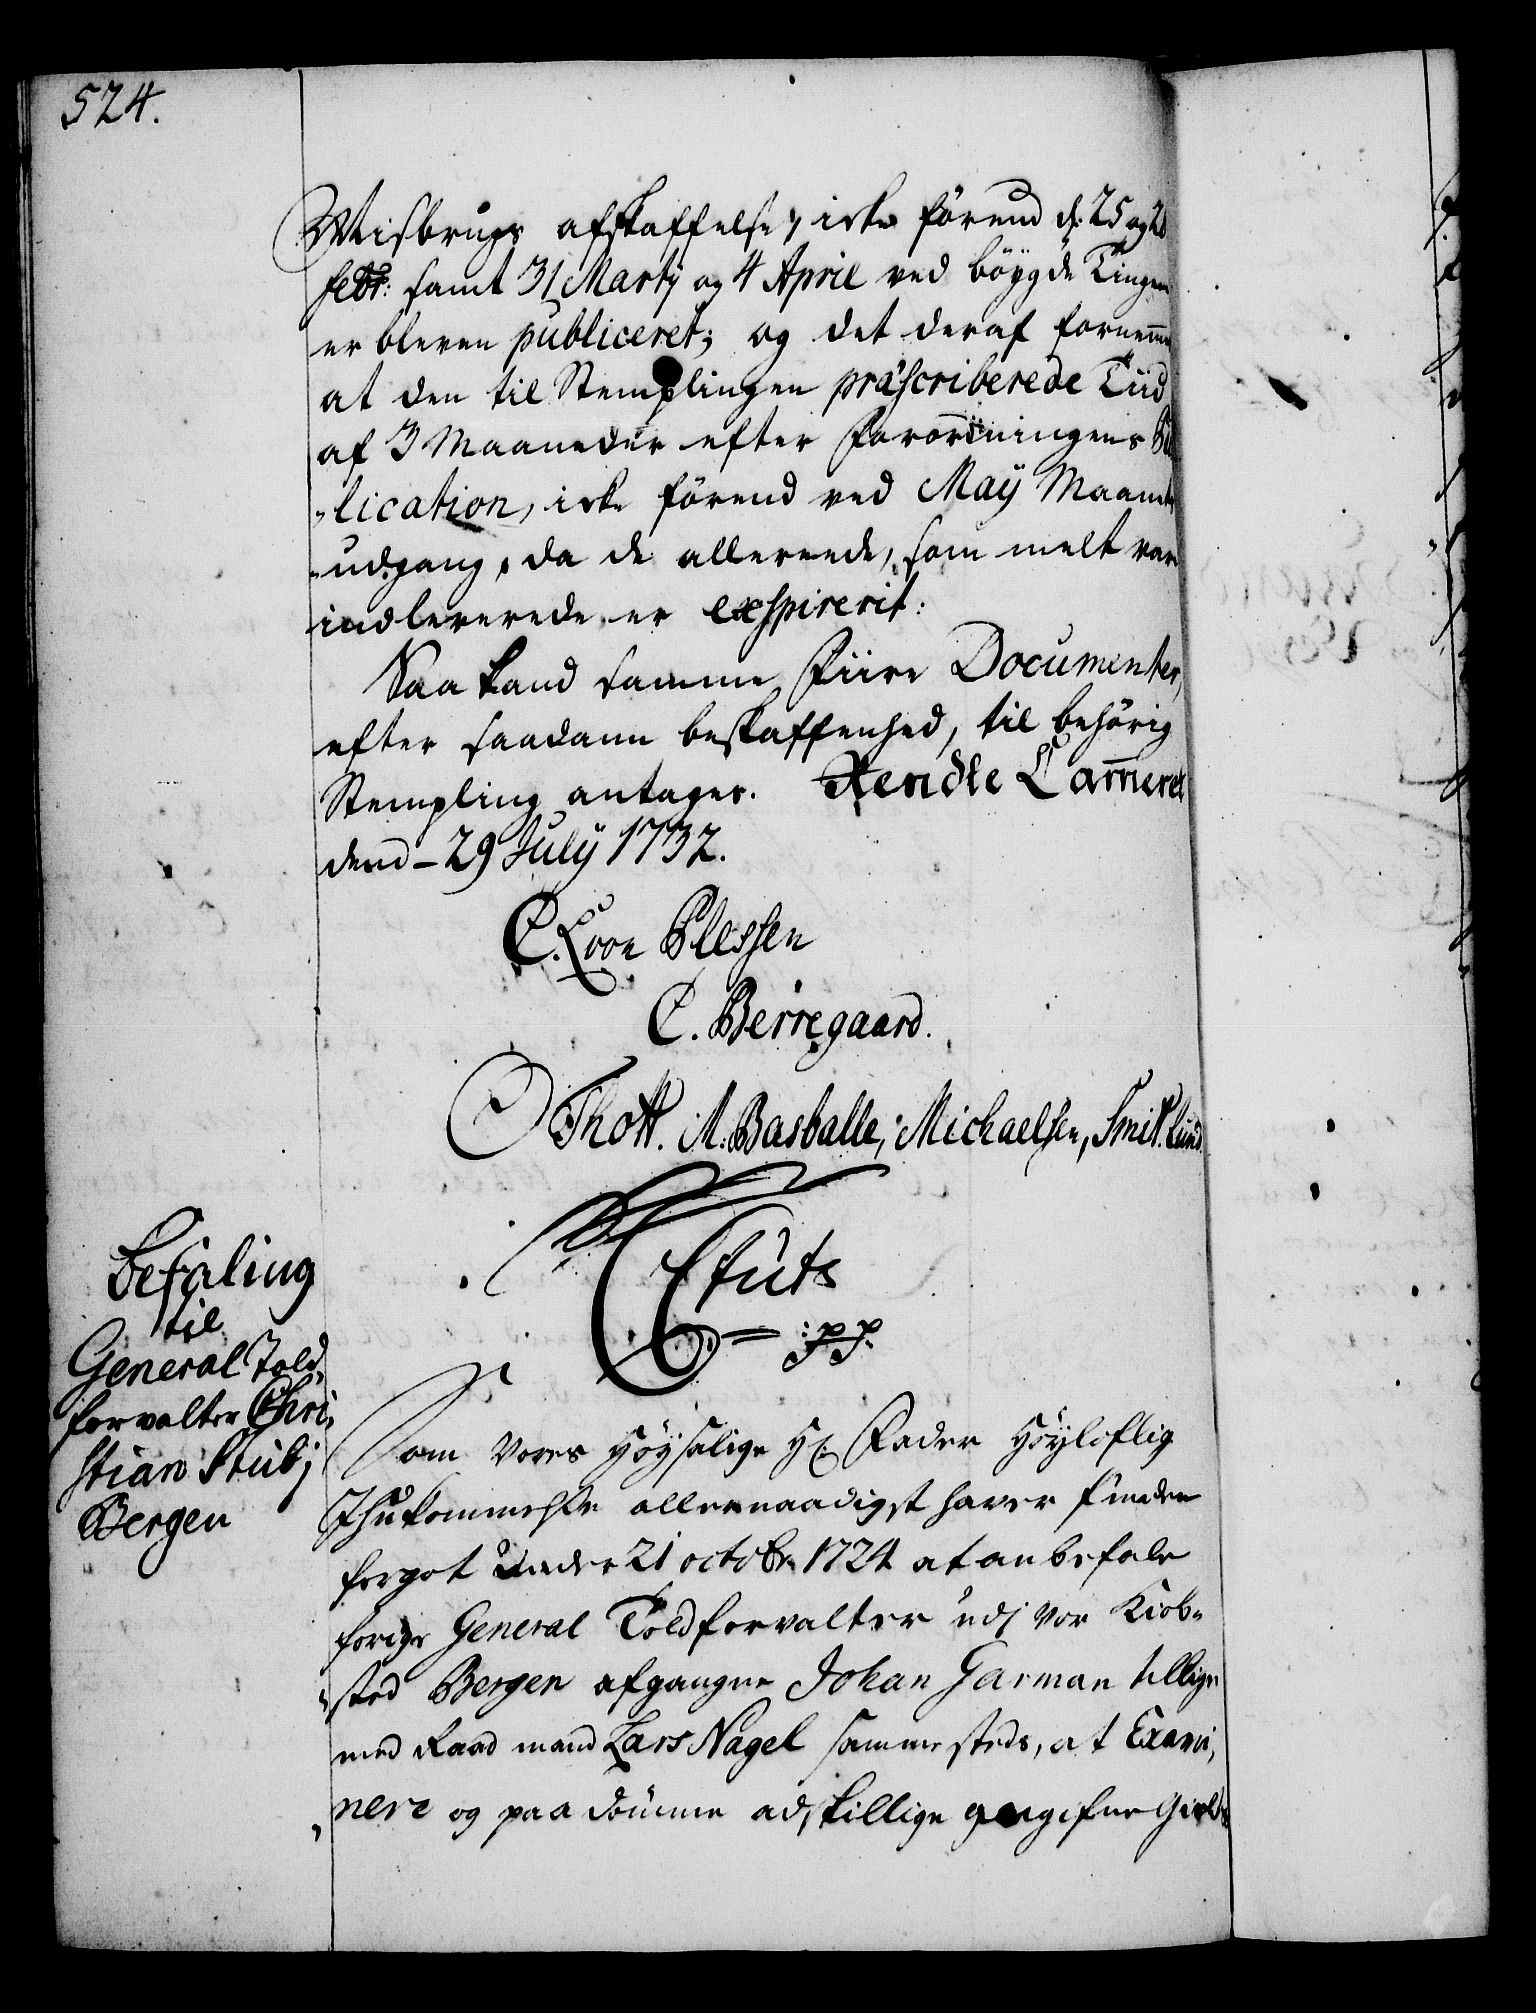 524.
Misbrugs afskaffelse, icke förend d: 25 og 28
febr: samt 31 Martÿ og 4 April ved böygde Tingene
er bleven publiceret; og det deraf fornemmes
at den til Stemplingen præscriberede Tiid
af 3 Maaneder efter Forordningens Pub
lication, icke förend ved Maÿ Maaneds
udgang, da de allereede, som melt var
indleverede er exspirerit:
Saa kand samme Fiire Documenter,
efter saadann beskaffenhed, til behörig
Stempling antages. Rendte Cammeret
dend 29 Julÿ 1732.
C. L von Plessen
C. Berregaard.
O Thott. M. Basballe, Michaelsen, Smit. Lund
Befaling
til
General Told,
forvalter Chri,
stian Stub j
Bergen
C 6tus
= :pp:
Som Vores Höysalige H: Fader Höyloflig
Ihukommelse allernaadigst haver funden
forgot under 21 octobr 1724 at anbefale
forige General Toldforvalter udj vor Kiöb-
sted Bergen afgangne Johan Garman tillige
med Raad mand Lars Nagel sammesteds, at Exami,
nere og paa dömme adskillige angifne Gields